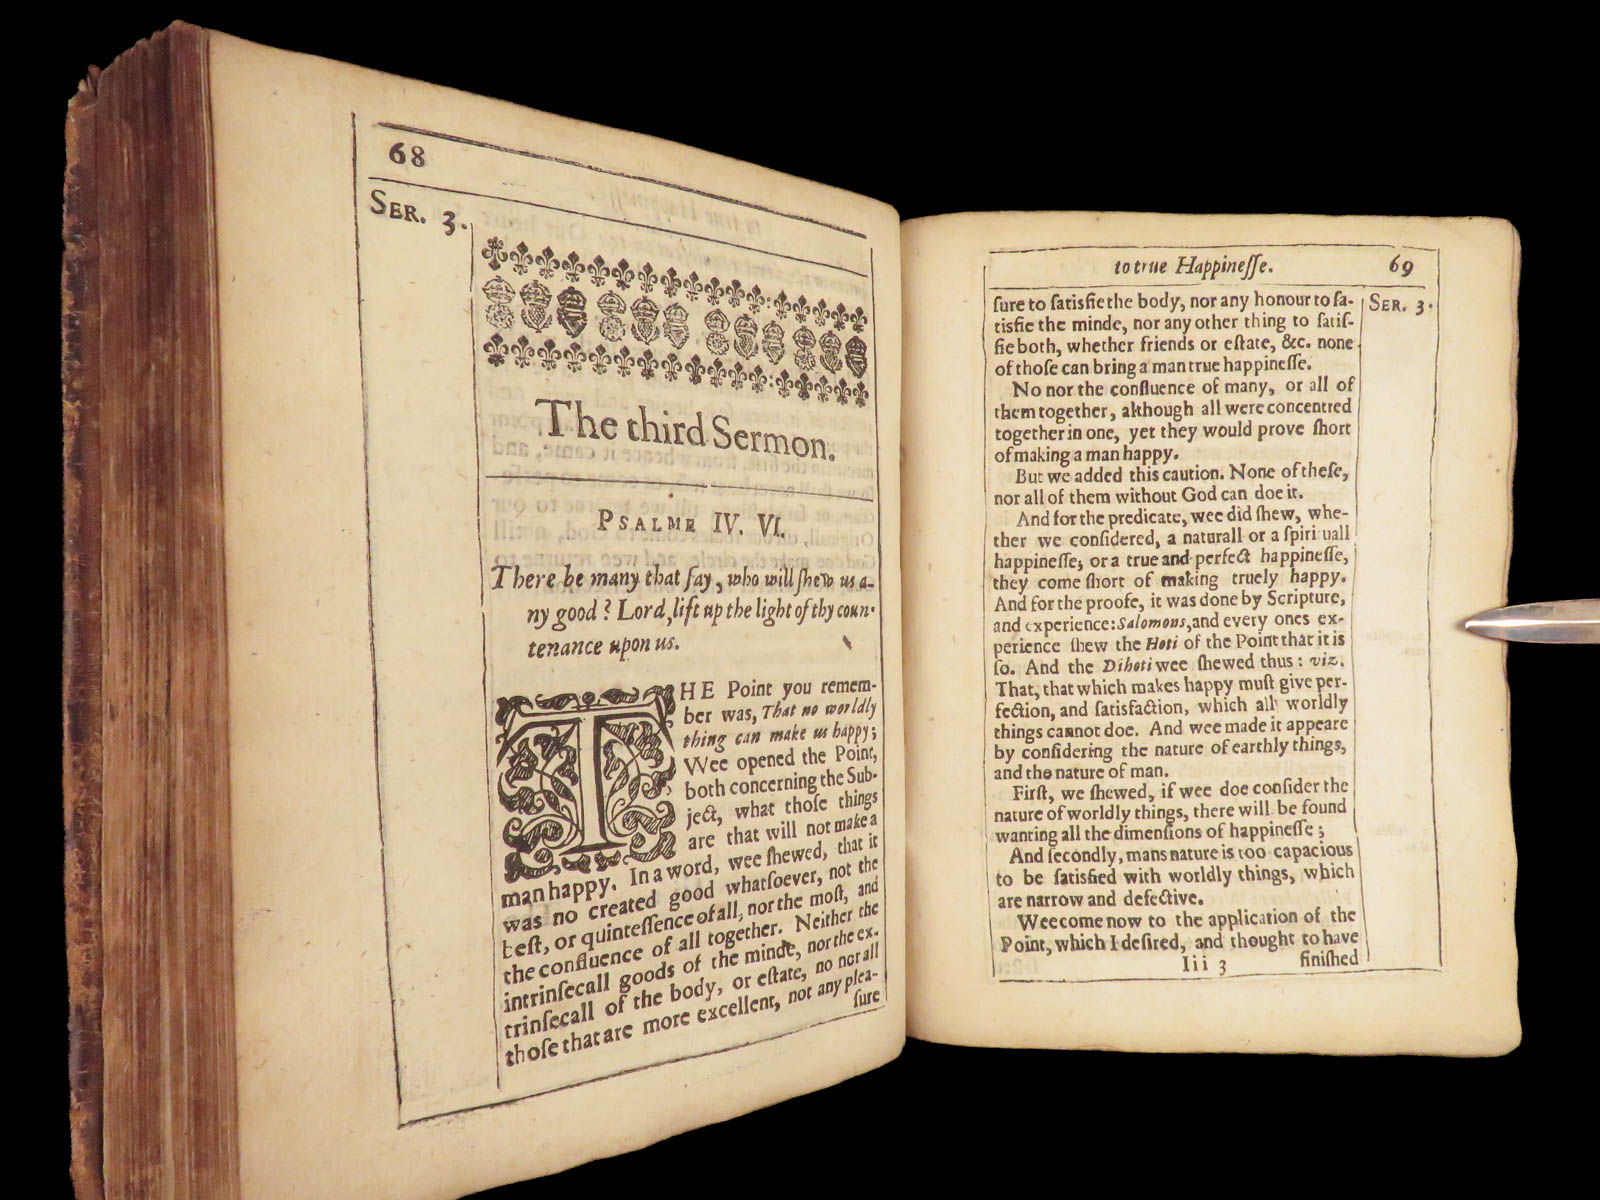 68
SER. 3.
The third Sermon.
PSALME IV. VI.
There be many that ſay, who will ſhew us a-
ny good? Lord, lift up the light of thy coun-
tenance upon us.
THE Point you remem-
ber was, That no worldly
thing can make us happy;
Wee opened the Point,
both concerning the Sub-
ject, what thoſe things
are that will not make a
man happy. In a word, wee ſhewed, that it
was no created good whatſoever, not the
beſt, or quinteſſence of all, nor the moſt, and
the confluence of all together. Neither the
intrinſecall goods of the minde, nor the ex-
trinſecall of the body, or eſtate, no nor all
thoſe that are more excellent, not any plea-
ſure
to true Happineſſe.
69
SER. 3.
ſure to ſatisfie the body, nor any honour to ſa-
tisfie the minde, nor any other thing to ſatiſ-
fie both, whether friends or eſtate, &c. none
of thoſe can bring a man true happineſſe.
No nor the confluence of many, or all of
them together, although all were concentred
together in one, yet they would prove ſhort
of making a man happy.
But we added this caution. None of theſe,
nor all of them without God can doe it.
And for the predicate, wee did ſhew, whe-
ther we conſidered, a naturall or a ſpirituall
happineſſe; or a true and perfect happineſſe,
they come ſhort of making truely happy.
And for the proofe, it was done by Scripture,
and experience: Salomons, and every ones ex-
perience ſhew the Hoti of the Point that it is
ſo. And the Dihoti wee ſhewed thus: viz.
That, that which makes happy muſt give per-
fection, and ſatisfaction, which all worldly
things cannot doe. And wee made it appeare
by conſidering the nature of earthly things,
and the nature of man.
Firſt, we ſhewed, if wee doe conſider the
nature of worldly things, there will be found
wanting all the dimenſions of happineſſe;
And ſecondly, mans nature is too capacious
to be ſatisfied with worldly things, which
are narrow and defective.
Wee come now to the application of the
Point, which I deſired, and thought to have
Iii 3 finiſhed